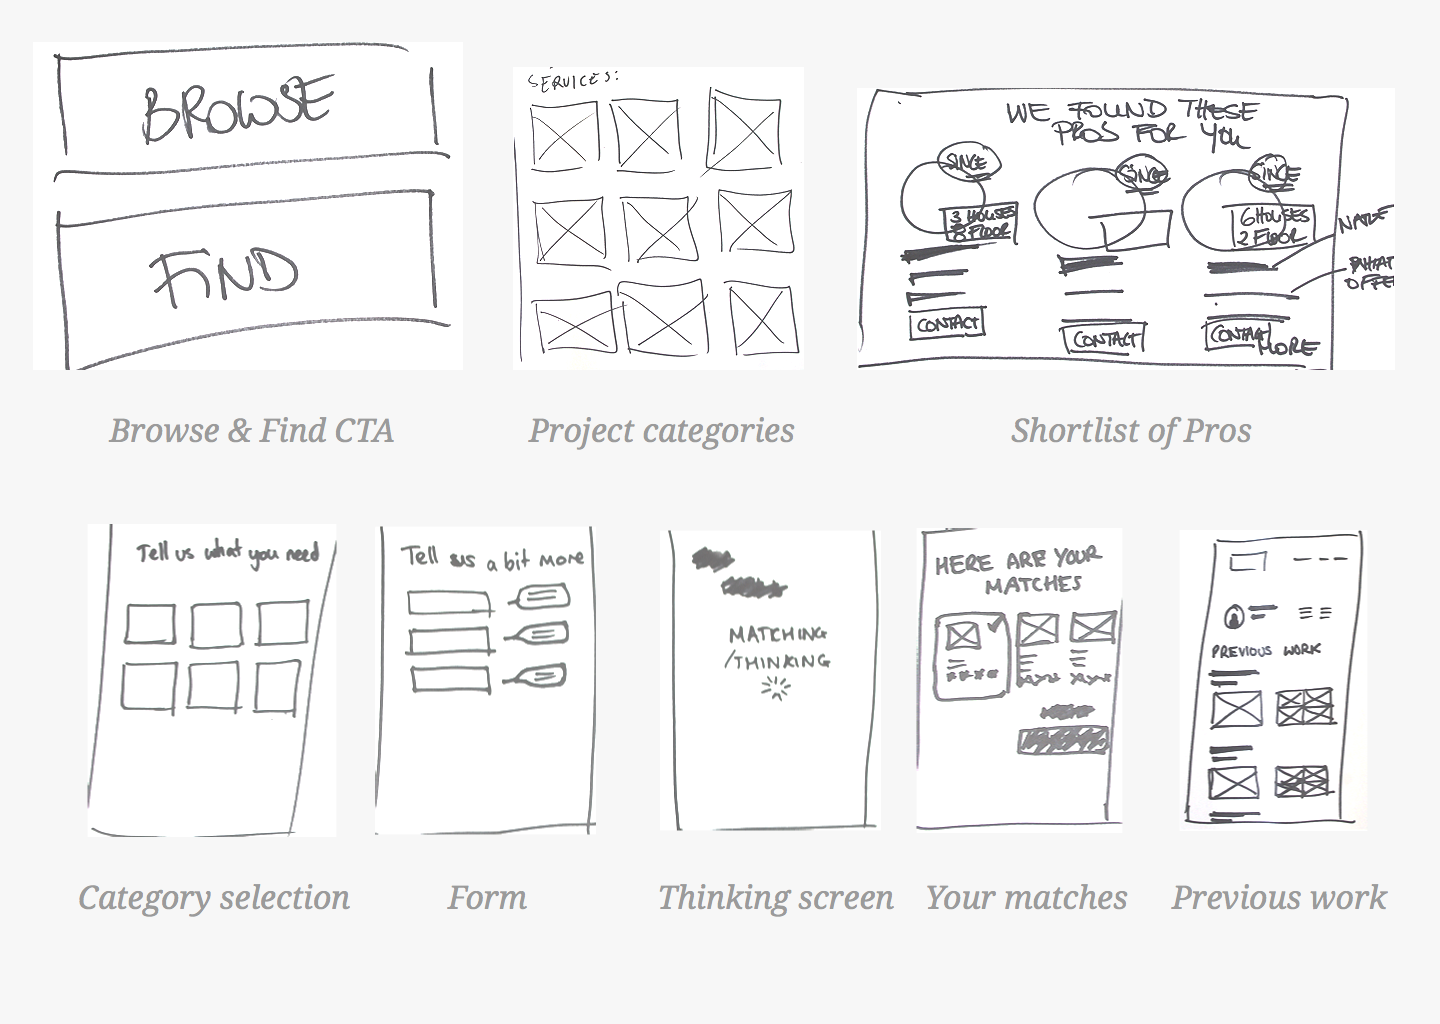 BROWSE
FIND
Browse & Find CTA
SERVICES:
Project categories
WE FOUND THESE
PROS FOR YOU
SINCE
3 HOUSES
8 FLOOR
CONTACT
SINCE
CONTACT
SINCE
6 HOUSES
2 FLOOR
CONTACT
MORE
NAME
WHAT
OFFE
Shortlist of Pros
Tell us what you need
Category selection
Tell us a bit more
Form
MATCHING
/THINKING
Thinking screen
HERE ARE YOUR
MATCHES
Your matches
PREVIOUS WORK
Previous work